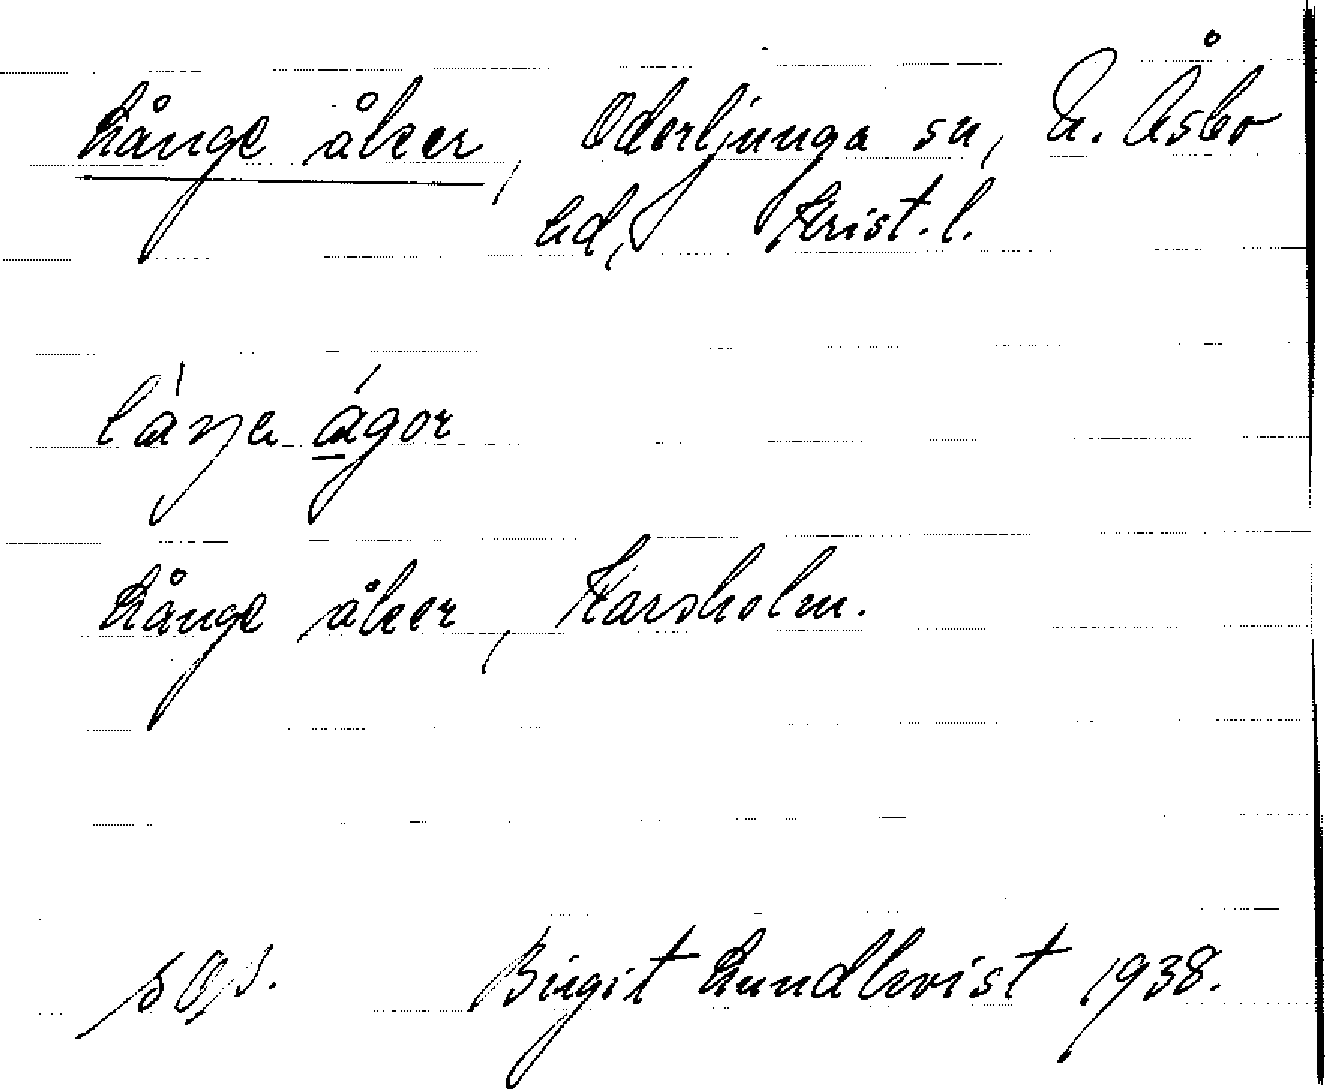 Långe åker, Oderljunga sn, N. Åsbo
hd, Krist. l.
láŋa ágor
Långe åker, Karsholm.
Birgit Lundkvist 1938.